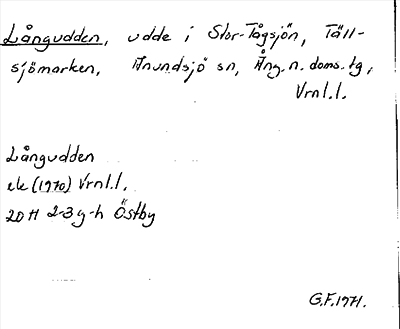 Långudden, udde i Stor-Tågsjön, Täll-
sjömarken, Anundsjö sn, Ång. n. doms. tg,
Vrnl.l.
Långudden
ek (1970) Vrnl.l.
20H 2-3g-h Östby
G.F.1971.